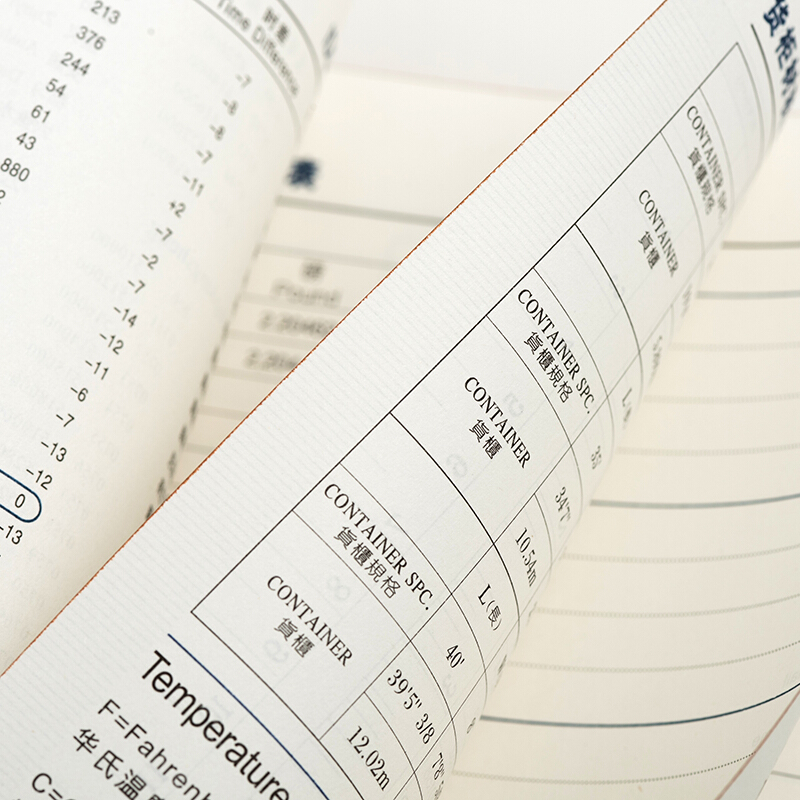 213
376
244
54
61
43
880
時差
Time Difference
-7
-8
-8
-7
-11
+2
-7
-2
-7
-14
-12
-11
-6
-7
-13
-12
0
-13
表
磅
Pound
CONTAINER SPC.
貨櫃規格
CONTAINER
貨櫃
CONTAINER SPC.
貨櫃規格
L
CONTAINER
貨櫃
35'
34'7"
10.54m
CONTAINER SPC.
貨櫃規格
L(長)
CONTAINER
貨櫃
40'
39'5" 3/8
12.02m
Temperature
F=Fahrenh
华氏温